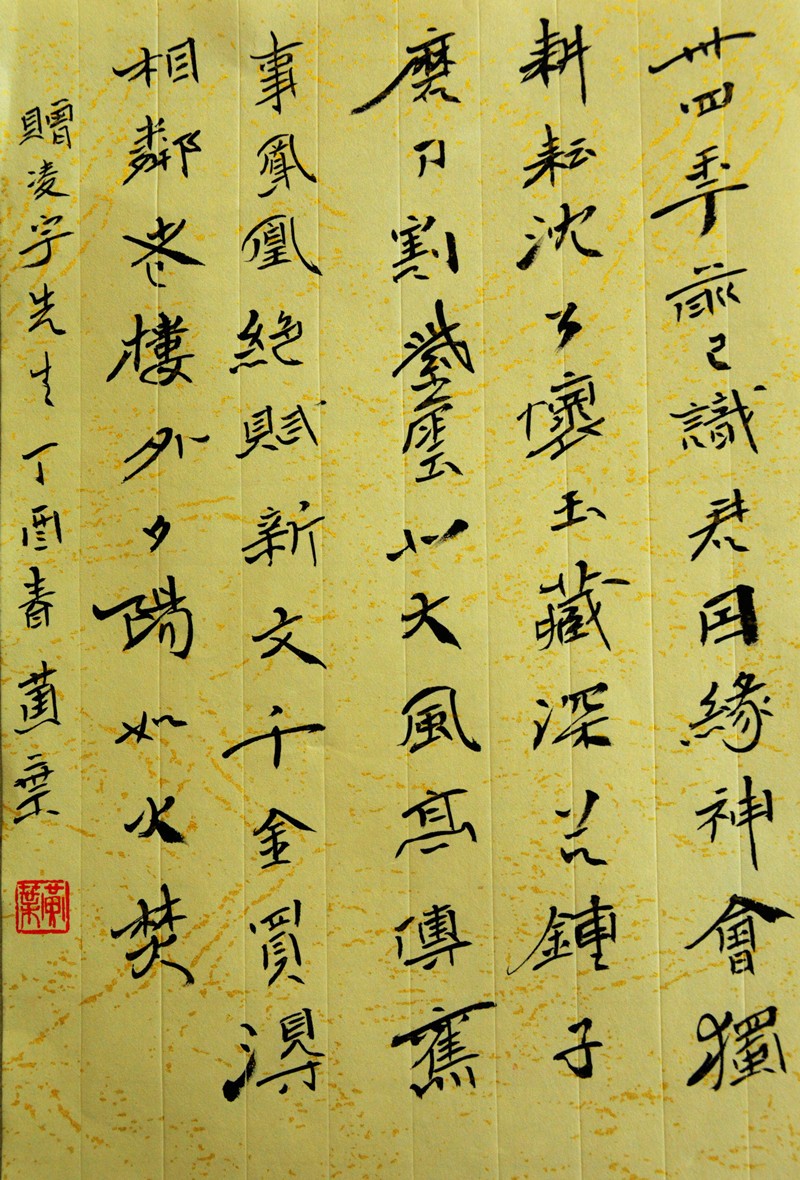 卅四年前已識君因緣神會獨
耕耘沈公懷玉藏深谷鍾子
磨刀割紫雲北大風高傳舊
事鳳凰絕賦新文千金買得
相鄰老樓外夕陽如火焚
贈凌宇先生丁酉春黃葉
黃葉